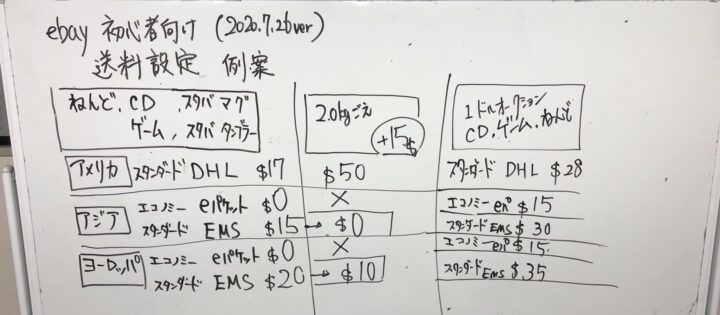 ebay 初心者向け (2020.7.26ver)
送料設定 例案
ねんど、CD 、スタバマグ
ゲーム、スタバタンブラー
2.0kgごえ
+15$
1ドルオークション
CD、ゲーム、ねんど
アメリカ スタンダード DHL $17 $50 スタンダード DHL $28
アジア エコノミー eパケット $0 × エコノミー eパ $15
スタンダード EMS $15 → $0 スタンダード EMS $30
ヨーロッパ エコノミー eパケット $0 × エコノミー eパ $15
スタンダード EMS $20 → $10 スタンダード EMS $35